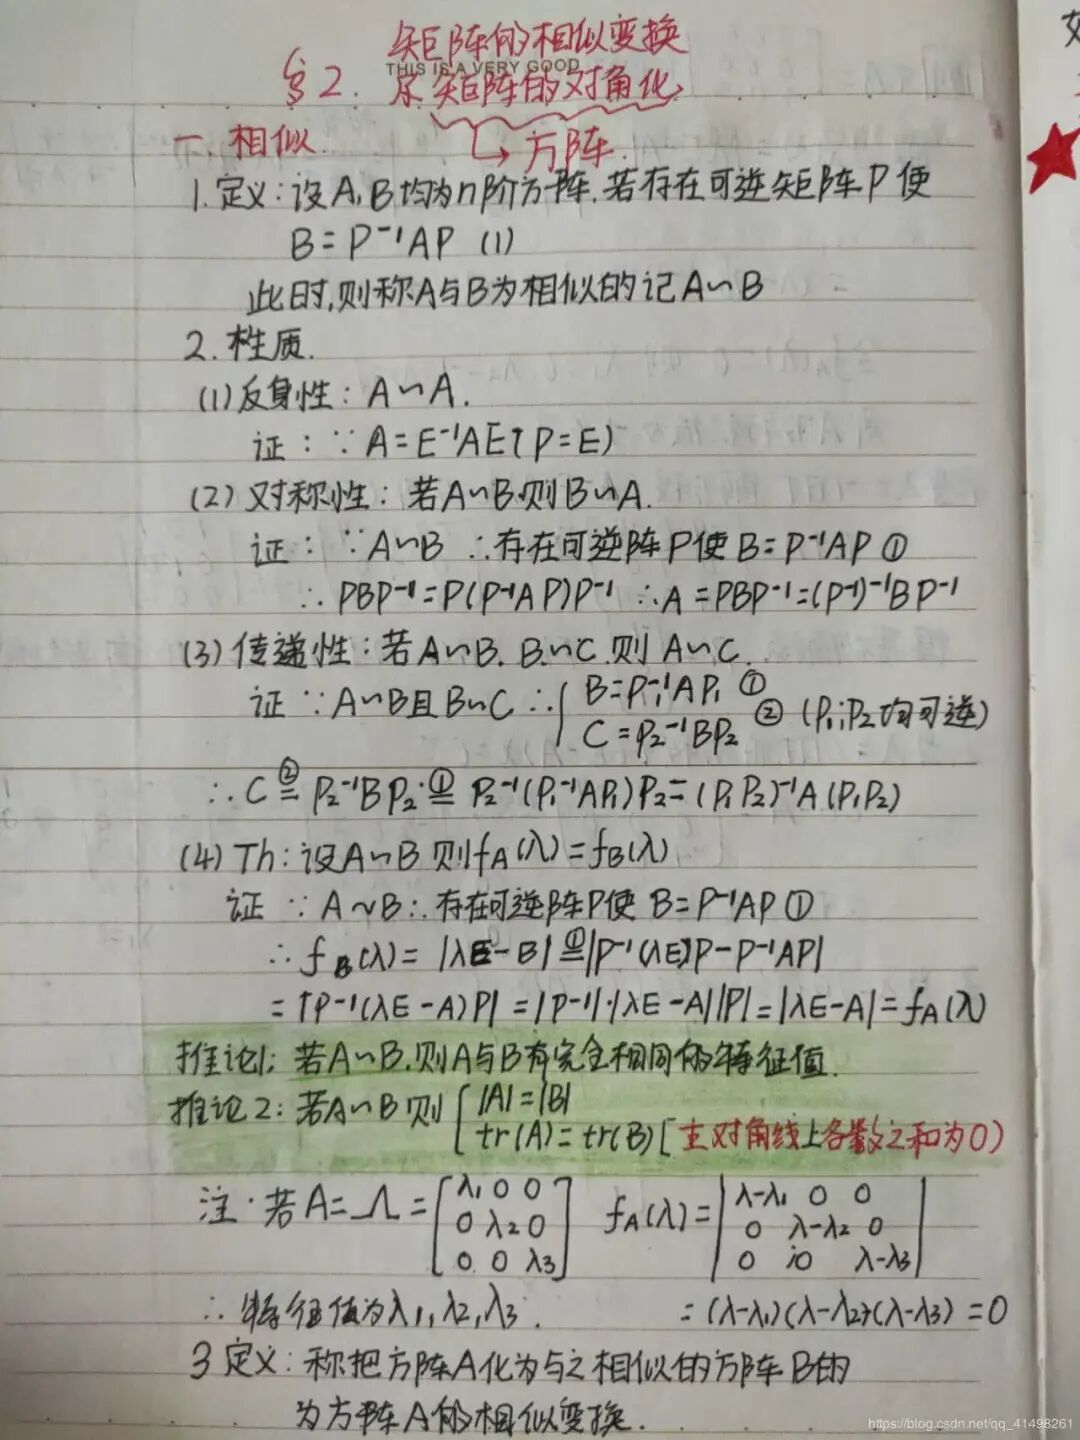 矩阵的相似变换
THIS IS A VERY GOOD
§2. 及矩阵的对角化
一. 相似. ↳ 方阵.
1. 定义: 设A, B均为n阶方阵. 若存在可逆矩阵P使
B = P⁻¹AP (1)
此时, 则称A与B为相似的记 A∽B
2. 性质.
(1) 反身性: A∽A.
证: ∵ A = E⁻¹AE (P=E)
(2) 对称性: 若A∽B.则B∽A.
证: ∵A∽B ∴存在可逆阵P使 B=P⁻¹AP ①
∴ PBP⁻¹=P(P⁻¹AP)P⁻¹ ∴A=PBP⁻¹=(P⁻¹)⁻¹BP⁻¹
(3) 传递性: 若A∽B. B∽C.则 A∽C.
证 ∵A∽B且B∽C ∴{ B=P₁⁻¹AP₁ ①
C=P₂⁻¹BP₂ ② (P₁;P₂均可逆)
∴ C ②= P₂⁻¹BP₂ ①= P₂⁻¹(P₁⁻¹AP₁)P₂=(P₁P₂)⁻¹A(P₁P₂)
(4) Th: 设A∽B 则f_A(λ)=f_B(λ)
证 ∵ A∽B∴ 存在可逆阵P使 B=P⁻¹AP ①
∴ f_B(λ)= |λE-B| ①= |P⁻¹(λE)P-P⁻¹AP|
= |P⁻¹(λE-A)P| = |P⁻¹|·|λE-A||P|=|λE-A|=f_A(λ)
推论1: 若A∽B.则A与B有完全相同的特征值.
推论2: 若A∽B 则 { |A|=|B|
tr(A)=tr(B) [主对角线上各数之和为0)
注: 若A=Λ= [λ₁ 0 0 f_A(λ)= |λ-λ₁ 0 0
0 λ₂ 0 0 λ-λ₂ 0
0 0 λ₃] 0 0 λ-λ₃|
∴ 特征值为λ₁, λ₂, λ₃. =(λ-λ₁)(λ-λ₂)(λ-λ₃)=0
3 定义: 称把方阵A化为与之相似的方阵B的
为方阵A的相似变换.
https://blog.csdn.net/qq_41498261